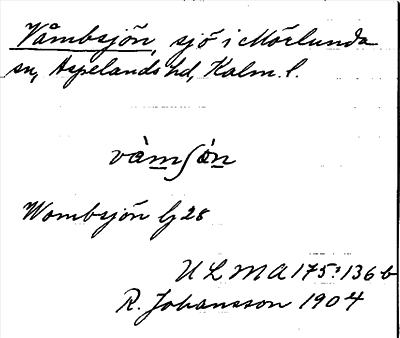 Våmbsjön, sjö i Mörlunda
sn, Aspelands hd, Kalm. l.
vàmʃön
Wombsjön Gj 28
ULMA 175:136b
R. Johansson 1904